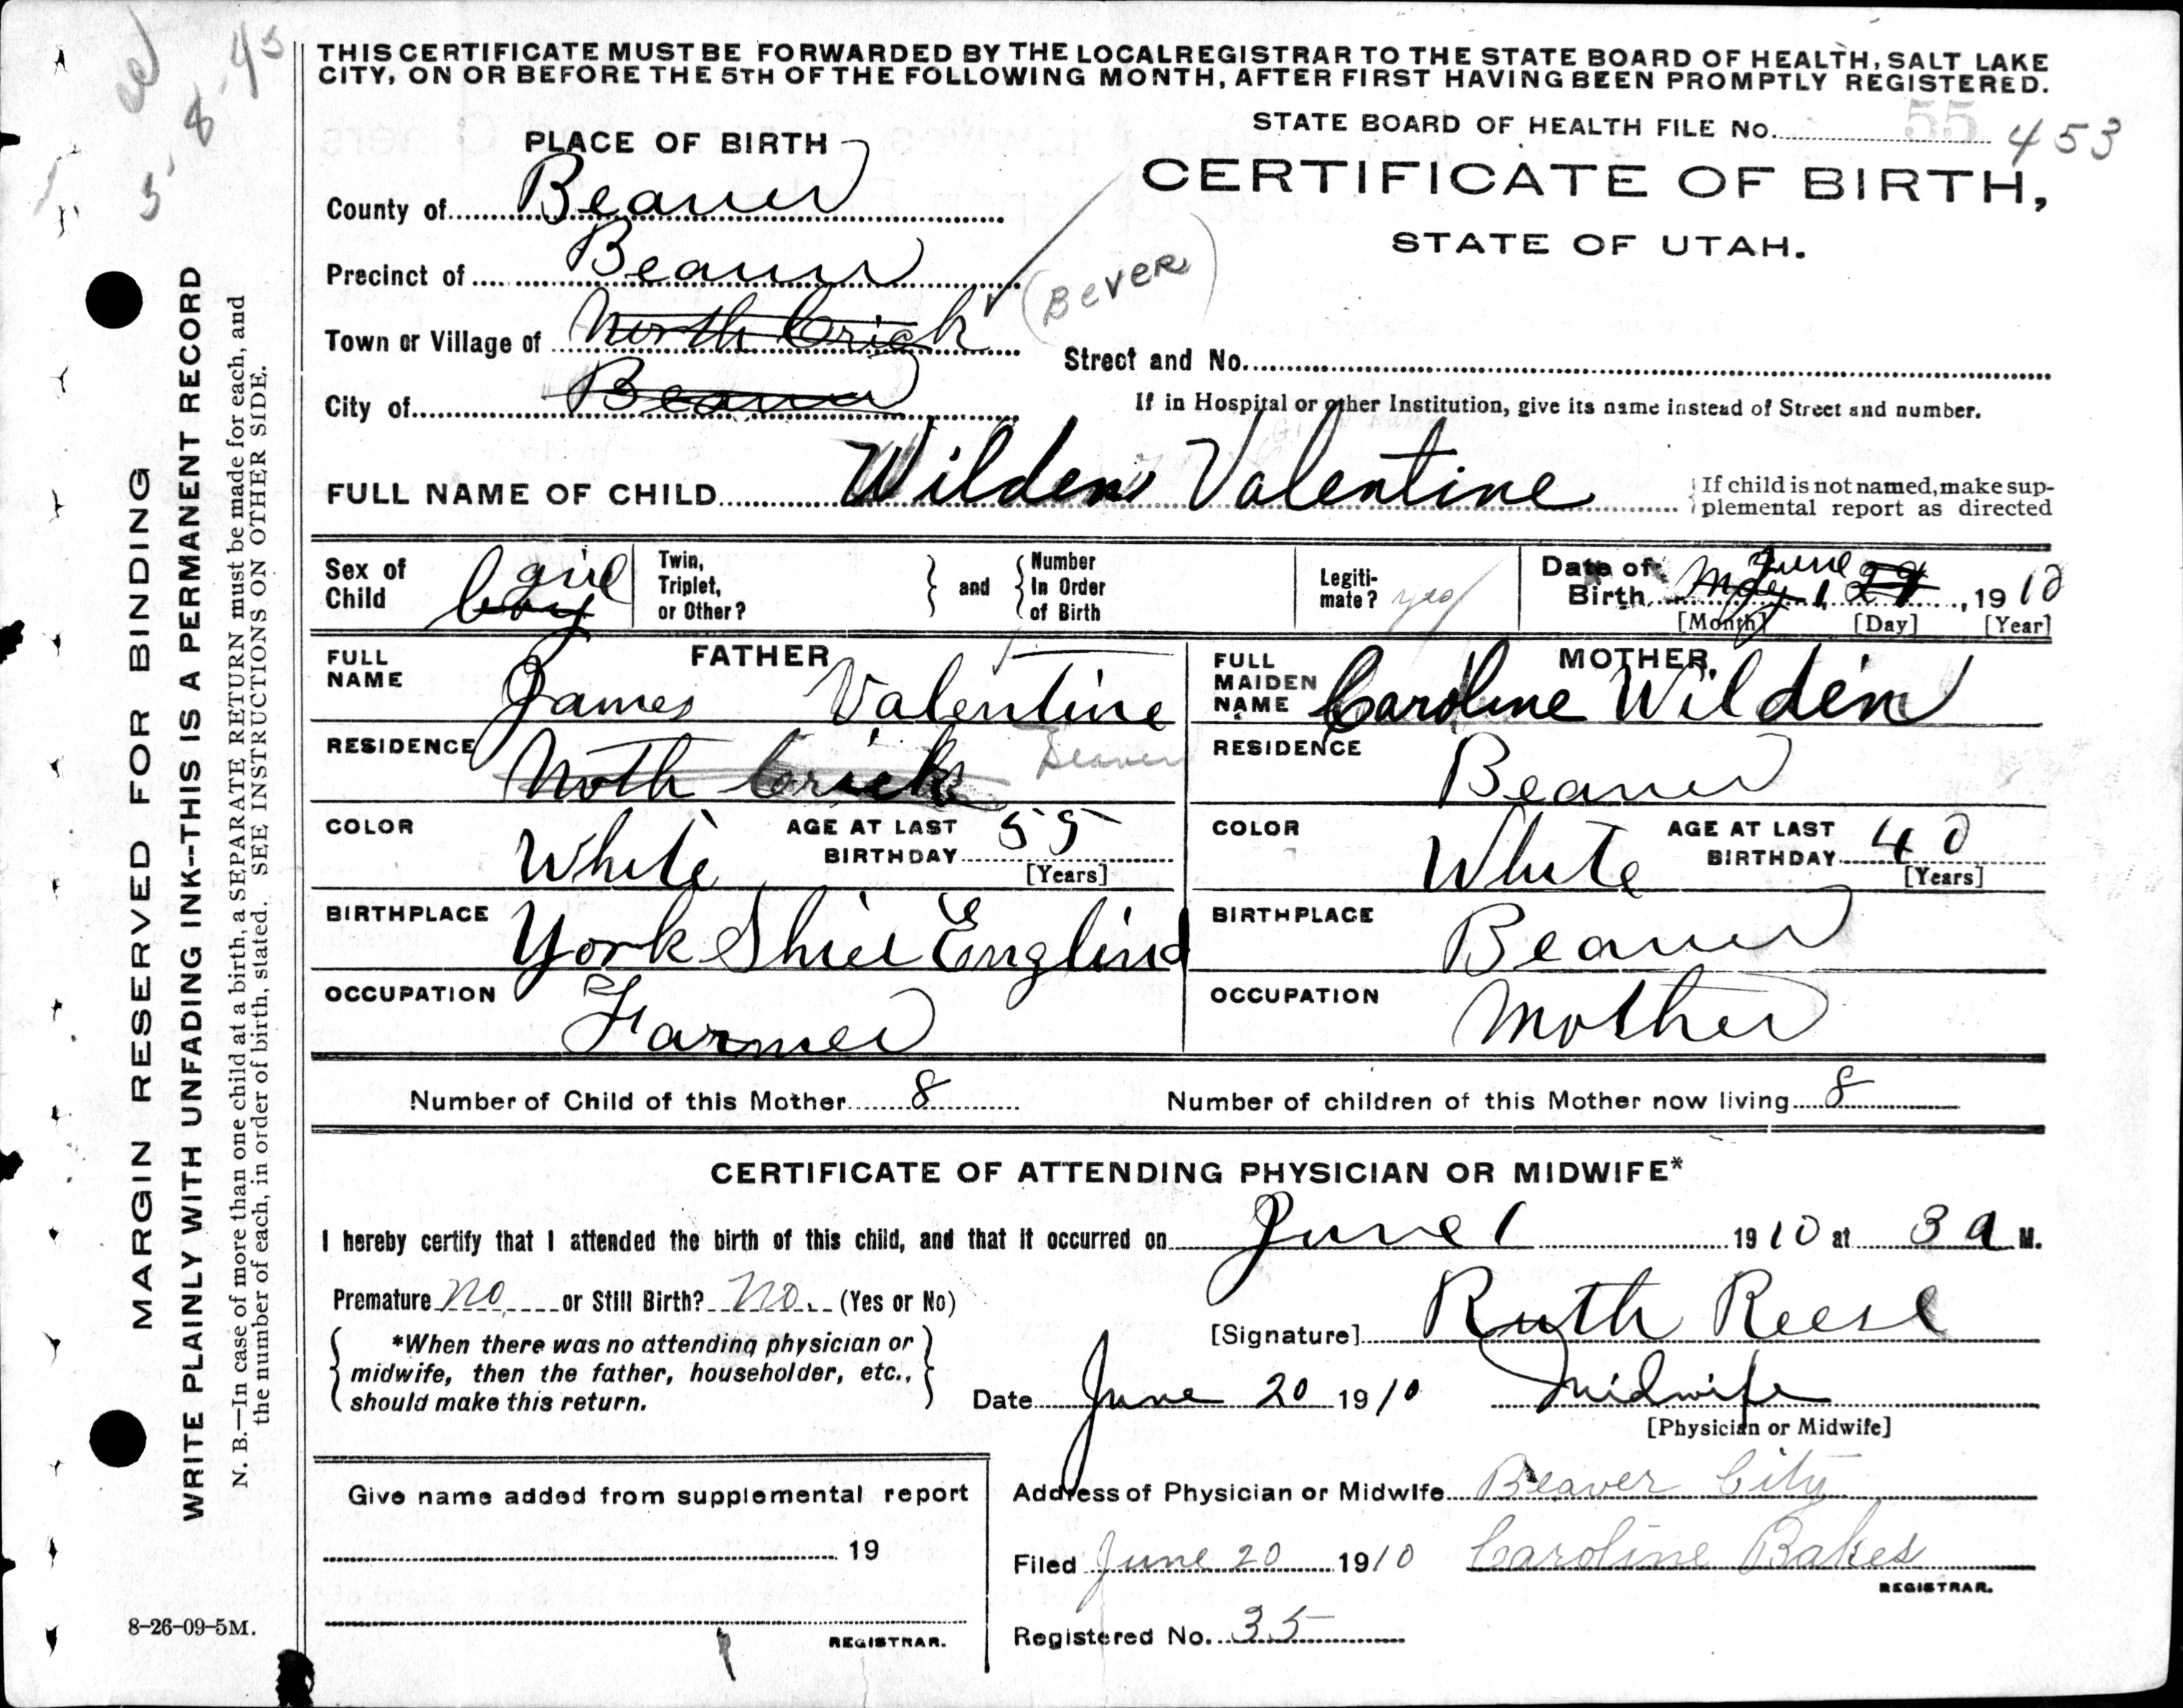 THIS CERTIFICATE MUST BE FORWARDED BY THE LOCAL REGISTRAR TO THE STATE BOARD OF HEALTH, SALT LAKE
CITY, ON OR BEFORE THE 5TH OF THE FOLLOWING MONTH, AFTER FIRST HAVING BEEN PROMPTLY REGISTERED.
5 8 45
STATE BOARD OF HEALTH FILE No. 55 453
PLACE OF BIRTH
CERTIFICATE OF BIRTH,
STATE OF UTAH.
County of Beaver
Precinct of Beaver
(BeveR)
Town or Village of North Crick
Street and No.
City of Beaver
If in Hospital or other Institution, give its name instead of Street and number.
FULL NAME OF CHILD Wilden Valentine
If child is not named, make sup-
plemental report as directed
Sex of
Child
boy girl
Twin,
Triplet,
or Other?
and
Number
in Order
of Birth
Legiti-
mate? yes
Date of
Birth May June 1, 29, 1910
[Month] [Day] [Year]
FATHER
FULL
NAME
James Valentine
RESIDENCE
Noth Crick Beaver
COLOR
White
AGE AT LAST
BIRTHDAY 55
[Years]
BIRTHPLACE
York Shiel Englind
OCCUPATION
Farmer
MOTHER
FULL
MAIDEN
NAME
Caroline Wilden
RESIDENCE
Beaver
COLOR
White
AGE AT LAST
BIRTHDAY 40
[Years]
BIRTHPLACE
Beaver
OCCUPATION
Mother
Number of Child of this Mother 8
Number of children of this Mother now living 8
CERTIFICATE OF ATTENDING PHYSICIAN OR MIDWIFE*
I hereby certify that I attended the birth of this child, and that it occurred on June 1 1910 at 3 a M.
Premature no or Still Birth? no (Yes or No)
*When there was no attending physician or
midwife, then the father, householder, etc.,
should make this return.
[Signature] Ruth Reese
Date June 20 1910 Midwife
[Physician or Midwife]
Give name added from supplemental report
19
REGISTRAR.
Address of Physician or Midwife Beaver City
Filed June 20 1910 Caroline Bakes
REGISTRAR.
Registered No. 35
8-26-09-5M.
MARGIN RESERVED FOR BINDING
WRITE PLAINLY WITH UNFADING INK--THIS IS A PERMANENT RECORD
N. B.—In case of more than one child at a birth, a SEPARATE RETURN must be made for each, and
the number of each, in order of birth, stated. SEE INSTRUCTIONS ON OTHER SIDE.